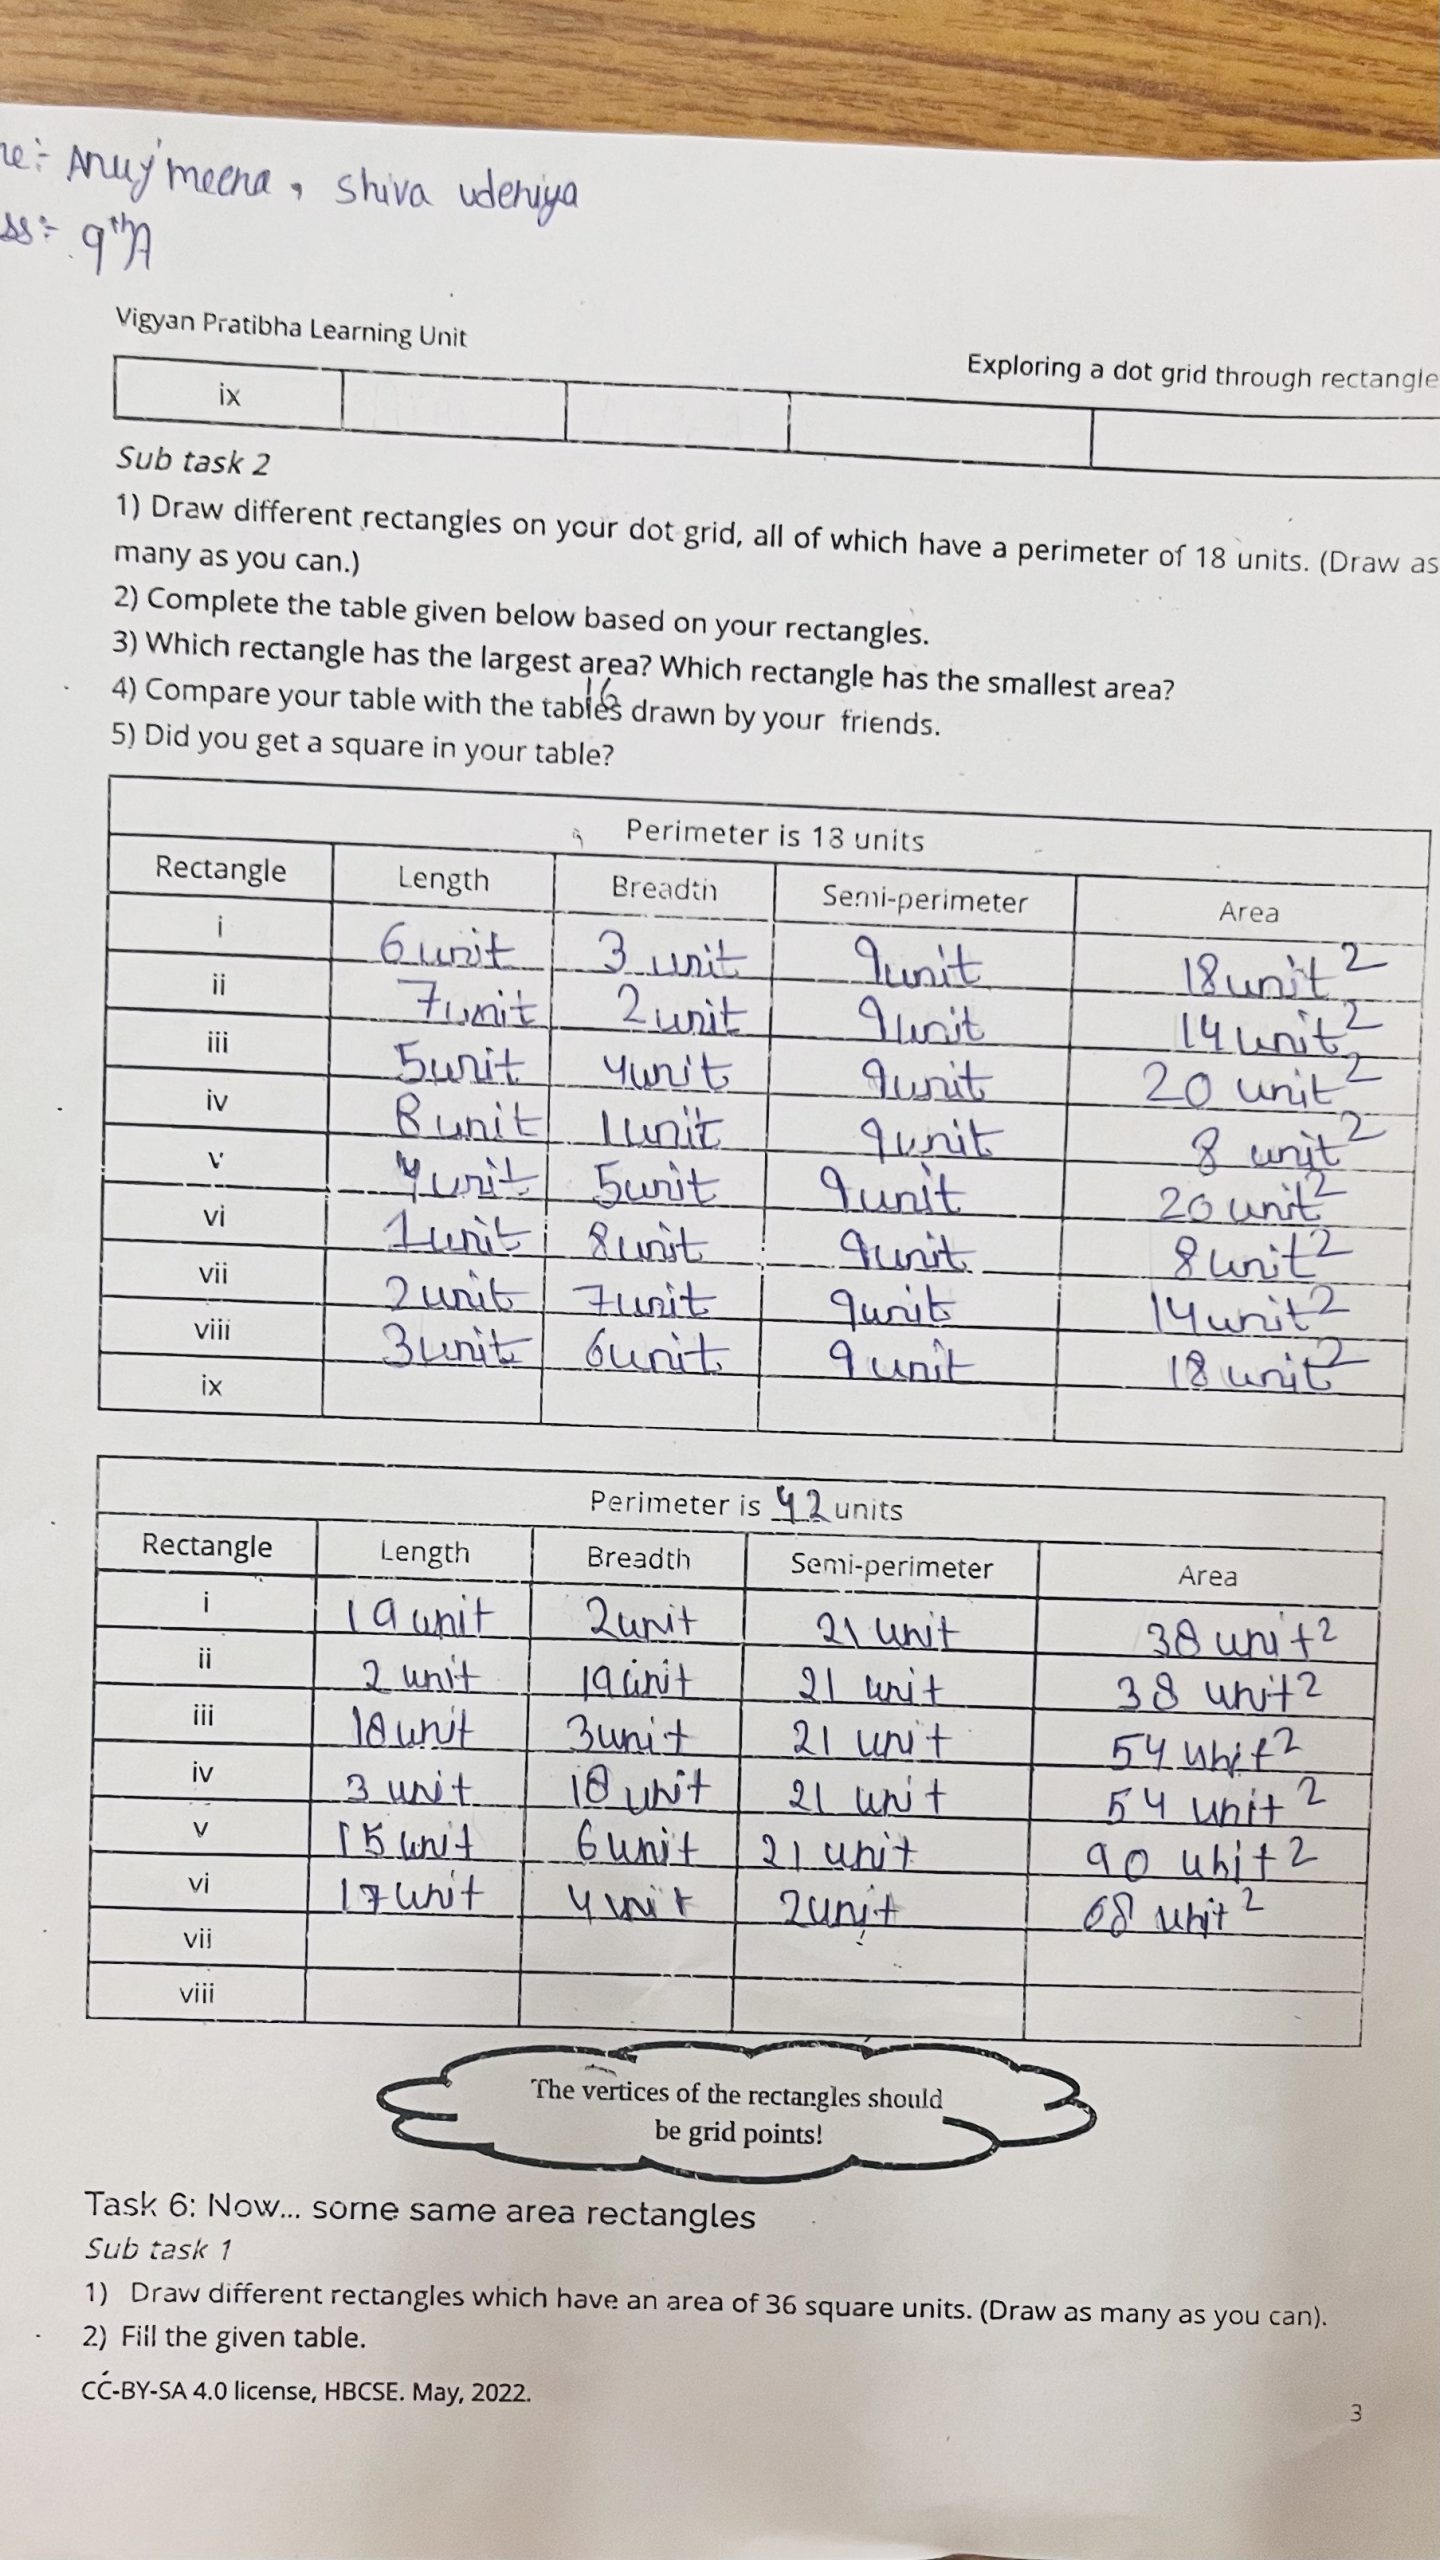 ne:- Anuj meena, Shiva udeniya
ss:- 9th A
Vigyan Pratibha Learning Unit
Exploring a dot grid through rectangle
ix
Sub task 2
1) Draw different rectangles on your dot grid, all of which have a perimeter of 18 units. (Draw as
many as you can.)
2) Complete the table given below based on your rectangles.
3) Which rectangle has the largest area? Which rectangle has the smallest area?
16
4) Compare your table with the tables drawn by your friends.
5) Did you get a square in your table?
Perimeter is 18 units
Rectangle Length Breadth Semi-perimeter Area
i 6 unit 3 unit 9 unit 18 unit²
ii 7 unit 2 unit 9 unit 14 unit²
iii 5 unit 4 unit 9 unit 20 unit²
iv 8 unit 1 unit 9 unit 8 unit²
v 4 unit 5 unit 9 unit 20 unit²
vi 1 unit 8 unit 9 unit 8 unit²
vii 2 unit 7 unit 9 unit 14 unit²
viii 3 unit 6 unit 9 unit 18 unit²
ix
Perimeter is 42 units
Rectangle Length Breadth Semi-perimeter Area
i 19 unit 2 unit 21 unit 38 unit²
ii 2 unit 19 unit 21 unit 38 unit²
iii 18 unit 3 unit 21 unit 54 unit²
iv 3 unit 18 unit 21 unit 54 unit²
v 15 unit 6 unit 21 unit 90 unit²
vi 17 unit 4 unit 2 unit 68 unit²
vii
viii
The vertices of the rectangles should
be grid points!
Task 6: Now... some same area rectangles
Sub task 1
1) Draw different rectangles which have an area of 36 square units. (Draw as many as you can).
2) Fill the given table.
CC-BY-SA 4.0 license, HBCSE. May, 2022.
3